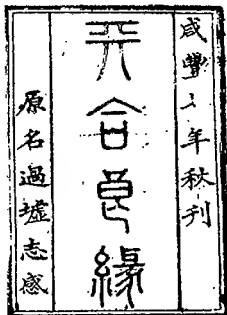 咸豐二年秋刊
天合良緣
原名過墟志感